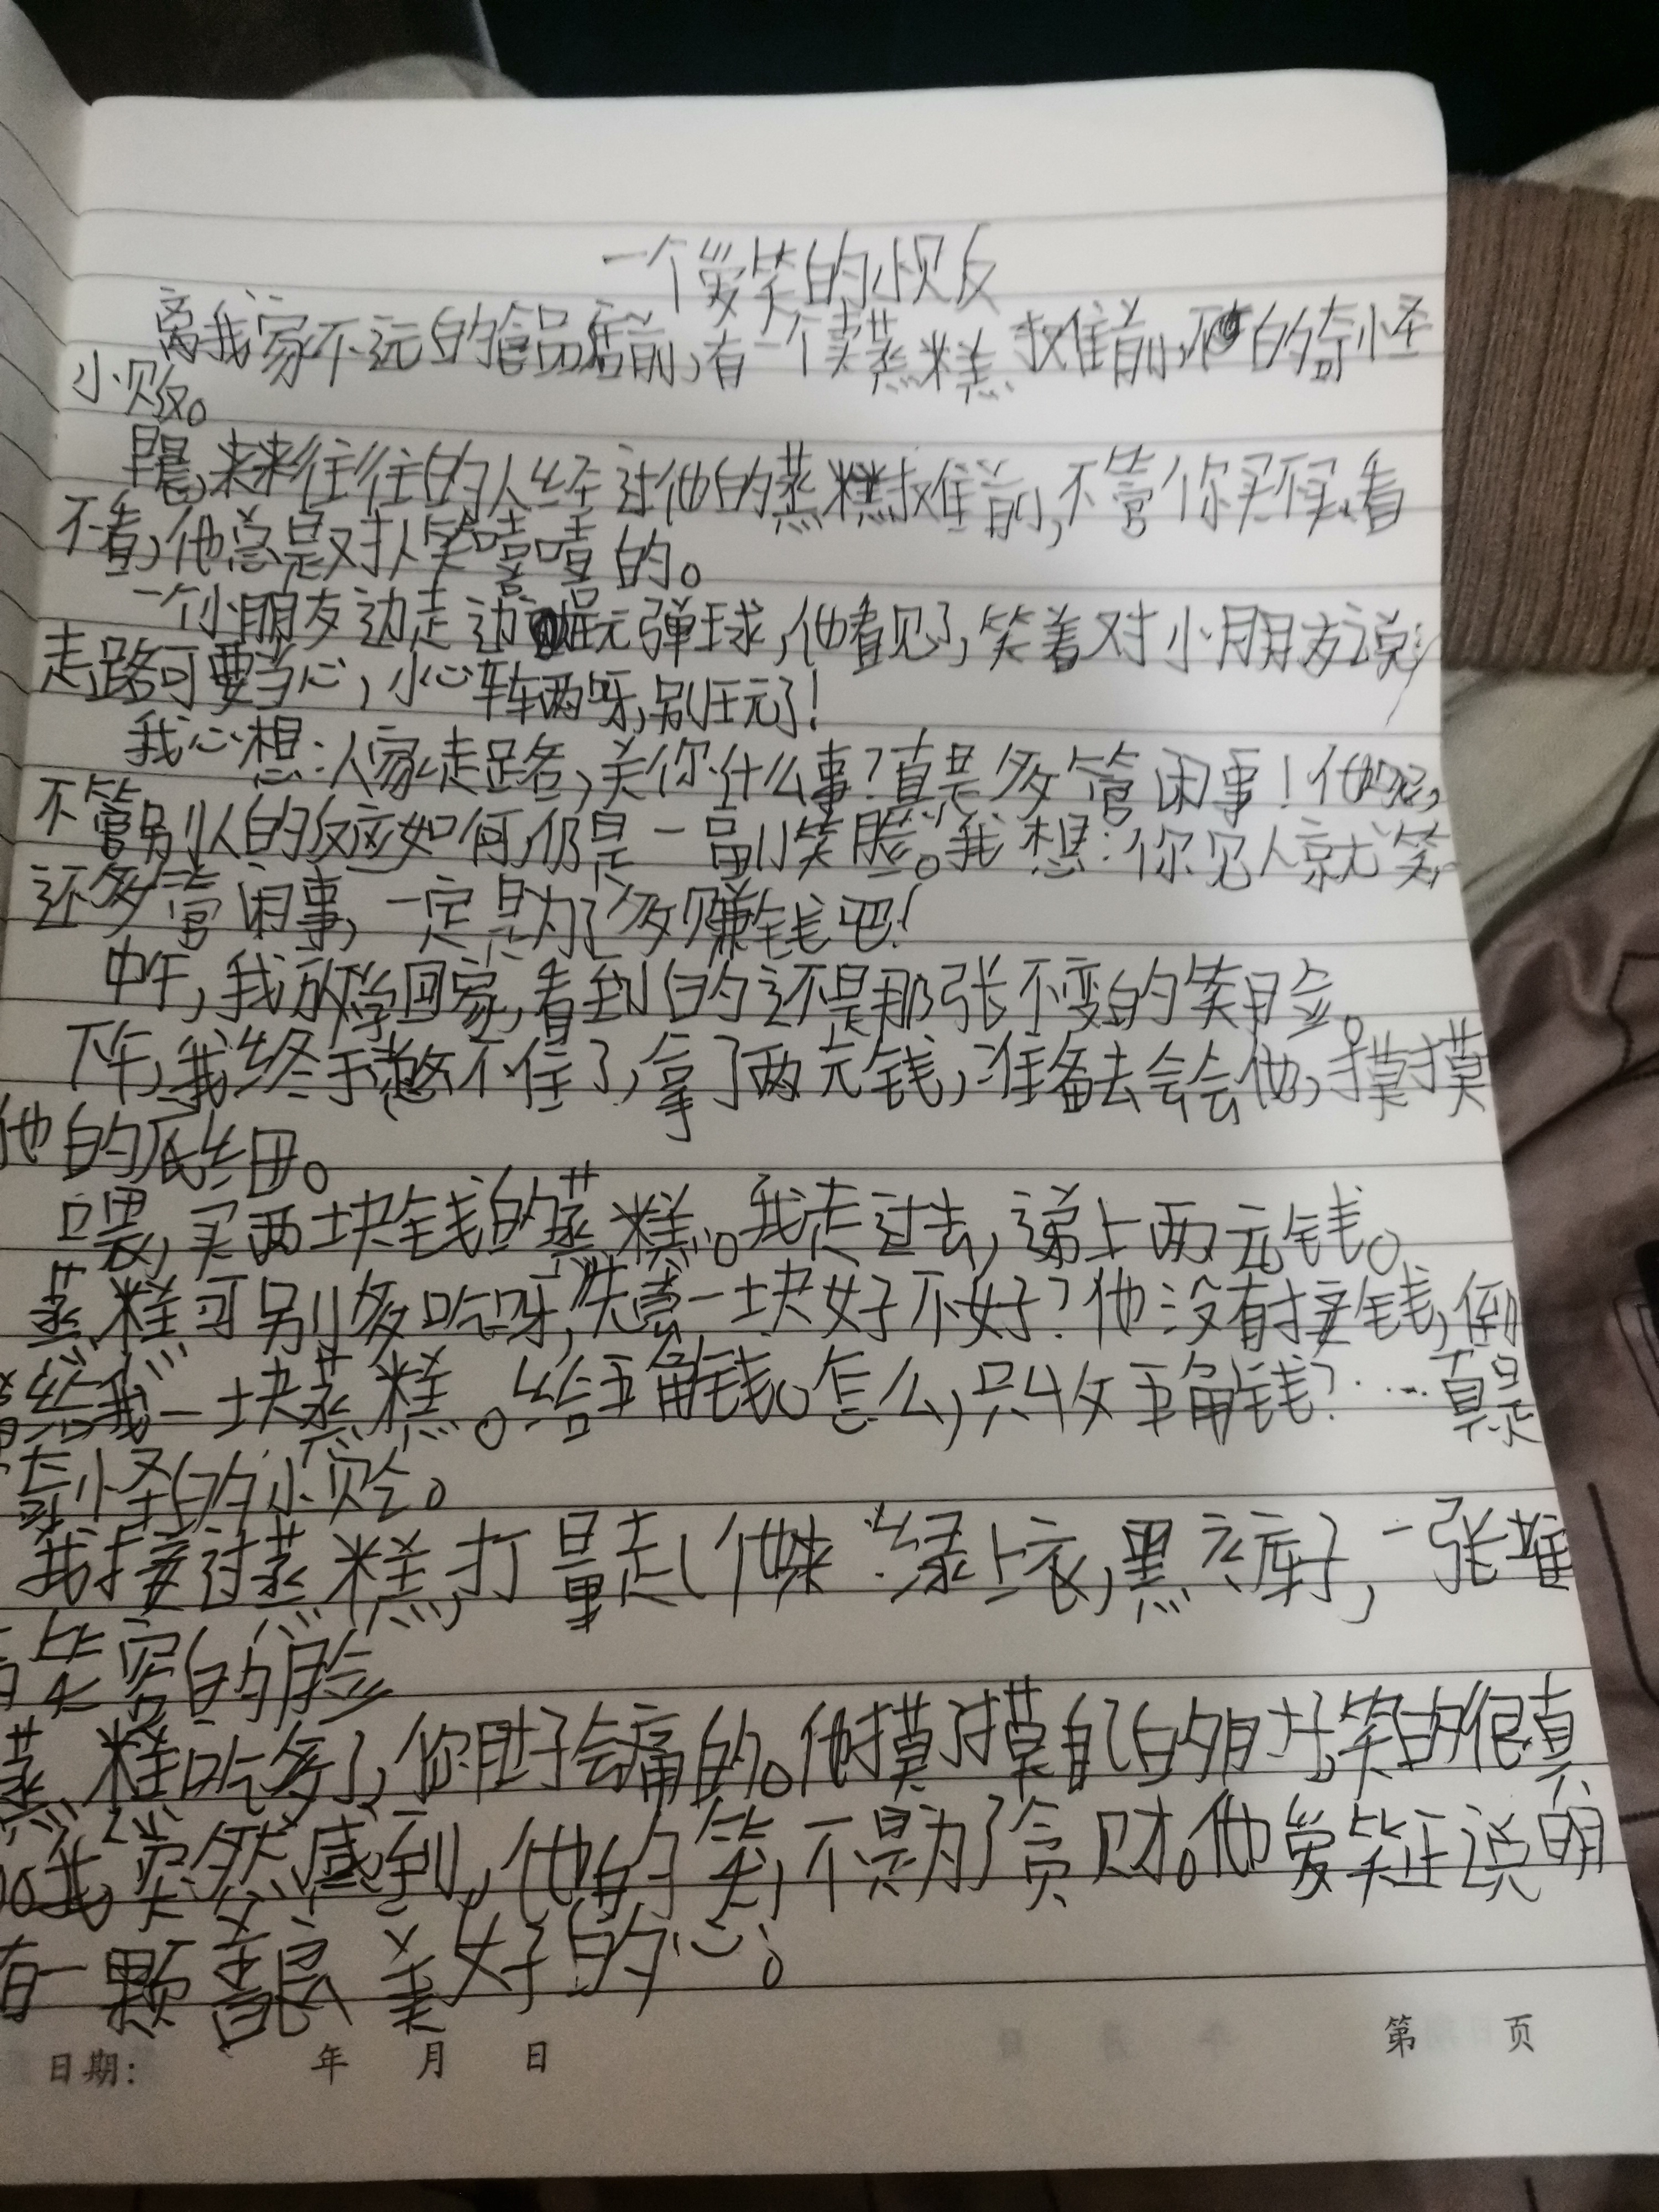 一个爱笑的小贩
离我家不远的食品店前,有一个卖蒸糕摊前,的奇怪
小贩。
早晨,来来往往的人经过他的蒸糕摊前,不管你买不买,看
不看,他总是对人笑嘻嘻的。
一个小朋友边走边玩弹球,他看见了,笑着对小朋友说:
走路可要当心,小心车辆呀,别玩了!
我心想:人家走路,关你什么事?真是多管闲事!他呢,
不管别人的反应如何,仍是一副笑脸。我想:你见人就笑,
还多管闲事,一定是为了多赚钱吧!
中午,我放学回家,看到的还是那张不变的笑脸。
下午,我终于憋不住了,拿了两元钱,准备去会会他,摸摸
他的底细。
喂,买两块钱的蒸糕。我走过去,递上两元钱。
蒸糕可别多吃呀,先尝一块好不好?他没有接钱,倒
给我一块蒸糕。给五角钱。怎么,只收五角钱?……真是
奇怪的小贩。
我接过蒸糕,打量起他来:绿上衣,黑裤子,一张堆
笑容的脸
蒸糕吃多了,你肚子会痛的。他摸摸自己的肚,笑的很真
我突然感到,他的笑,不是为了贪财。他爱笑正说明
有一颗善良美好的心。
日期: 年 月 日
第 页